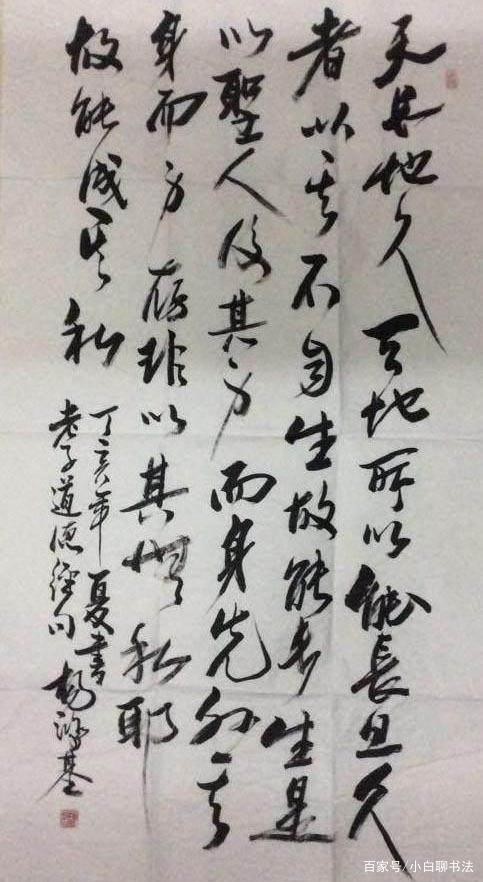 天長地久天地所以能長且久
者以其不自生故能長生是
以聖人後其身而身先外其
身而身存非以其無私耶
故能成其私
丁亥年夏書
老子道德經句 楊洪基
百家号/小白聊书法